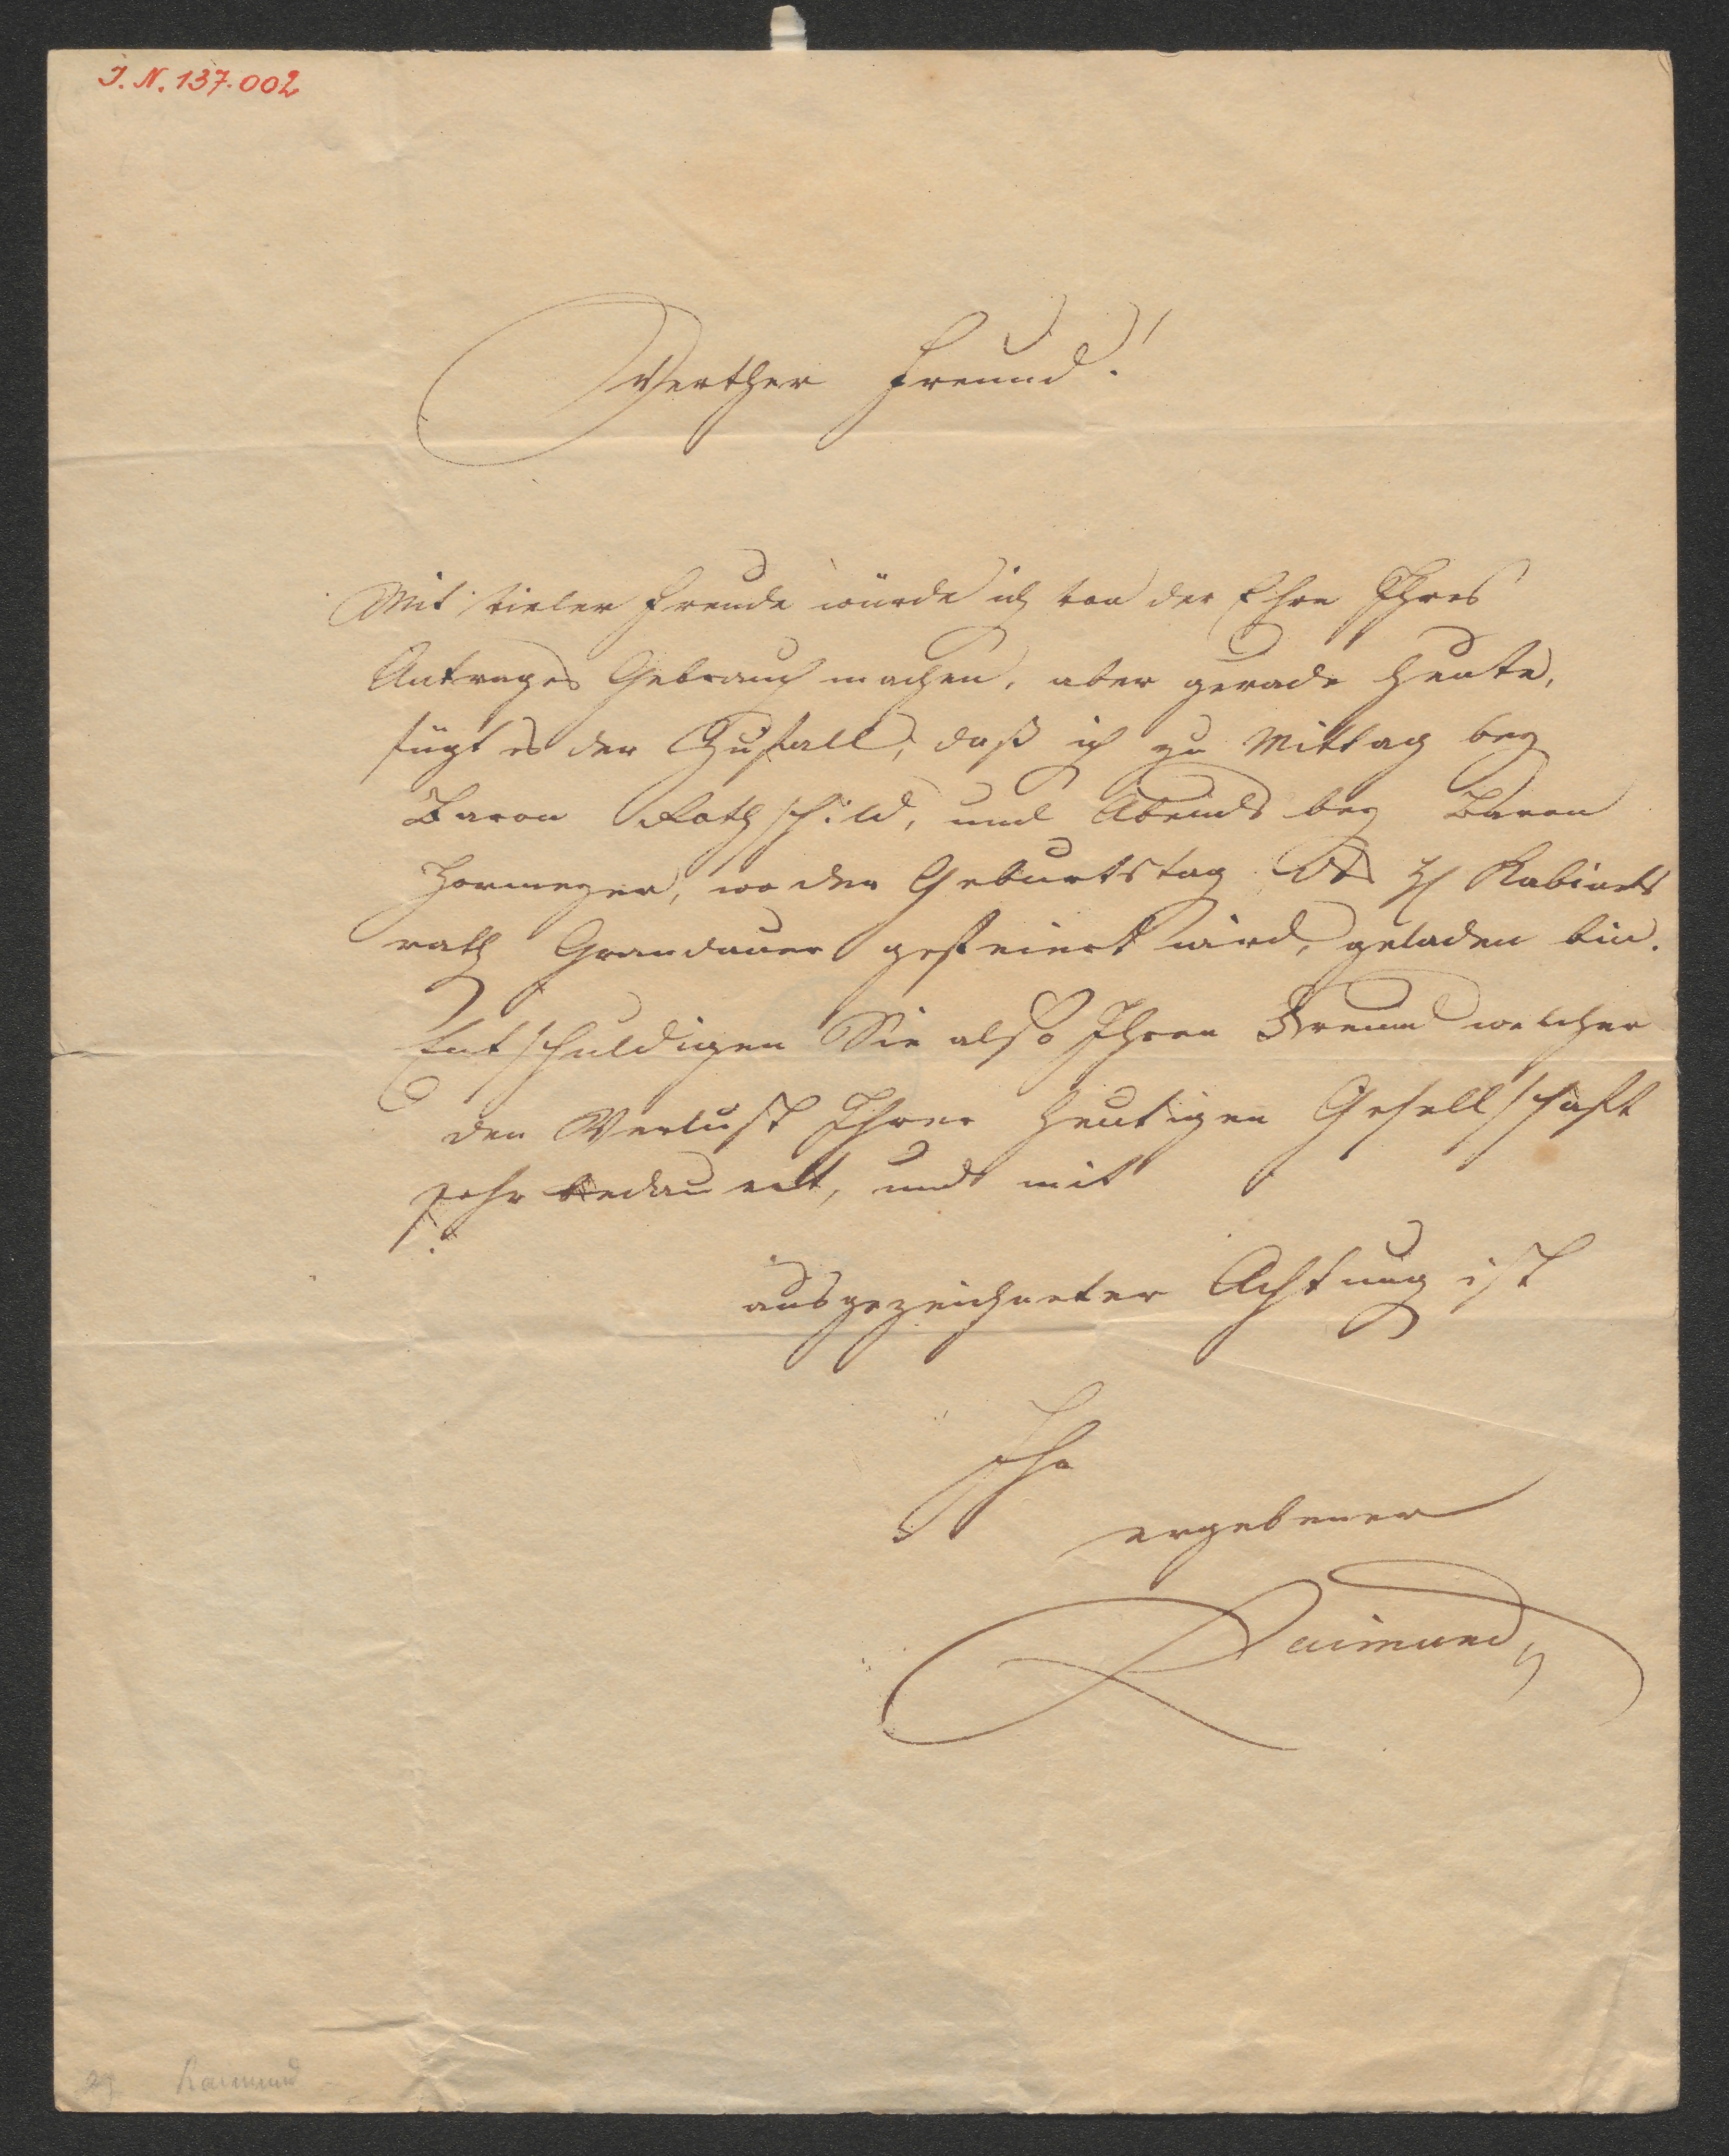 J. N. 137.002
Werther Freund!
Mit vieler Freude würde ich von der Ehre Ihres
Antrages Gebrauch machen, aber gerade heute,
fügt es der Zufall, daß ich zu Mittag bey
Baron Rothschild, und Abends bey Baron
Hormeyer, wo der Geburtstag des H Kabinets
rath Grandauer gefeiert wird, geladen bin.
Entschuldigen Sie also Ihren Freund welcher
den Verlust Ihrer heutigen Gesellschaft
sehr bedauert, und mit
ausgezeichneter Achtung ist
Ihr
ergebener
Raimund
Raimund